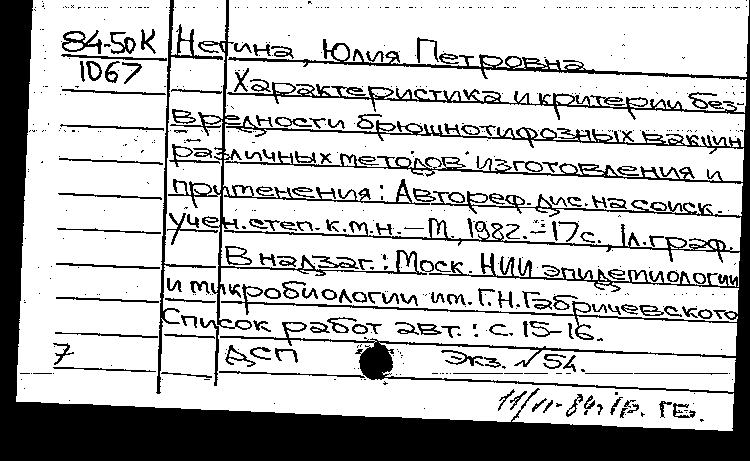 84-50К Негина, Юлия Петровна.
1067
Характеристика и критерии без-
вредности брюшнотифозных вакцин
различных методов изготовления и
применения: Автореф. дис. на соиск.
учен. степ. к.м.н. – М., 1982. – 17с., 1л. граф.
В надзаг.: Моск. НИИ эпидемиологии
и микробиологии им. Г.Н. Габричевского
Список работ авт.: с. 15-16.
7 ДСП Экз. №54.